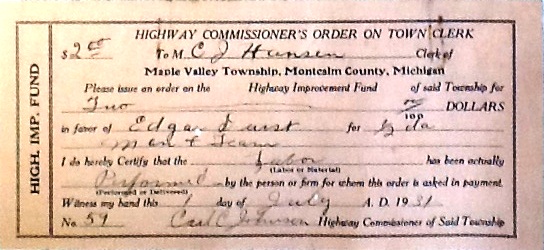 HIGHWAY COMMISSIONER'S ORDER ON TOWN CLERK
$2 00 To M. C J Hansen Clerk of
Maple Valley Township, Montcalm County, Michigan
Please issue an order on the Highway Improvement Fund of said Township for
Two no/100 DOLLARS
in favor of Edgar for
Man & Team
I do hereby Certify that the Labor has been actually
(Labor or Material)
Preformed by the person or firm for whom this order is asked in payment.
(Performed or Delivered)
Witness my hand this 1 day of July A. D. 1931
No. 59 Carl C Johnson Highway Commissioner of Said Township
HIGH. IMP. FUND